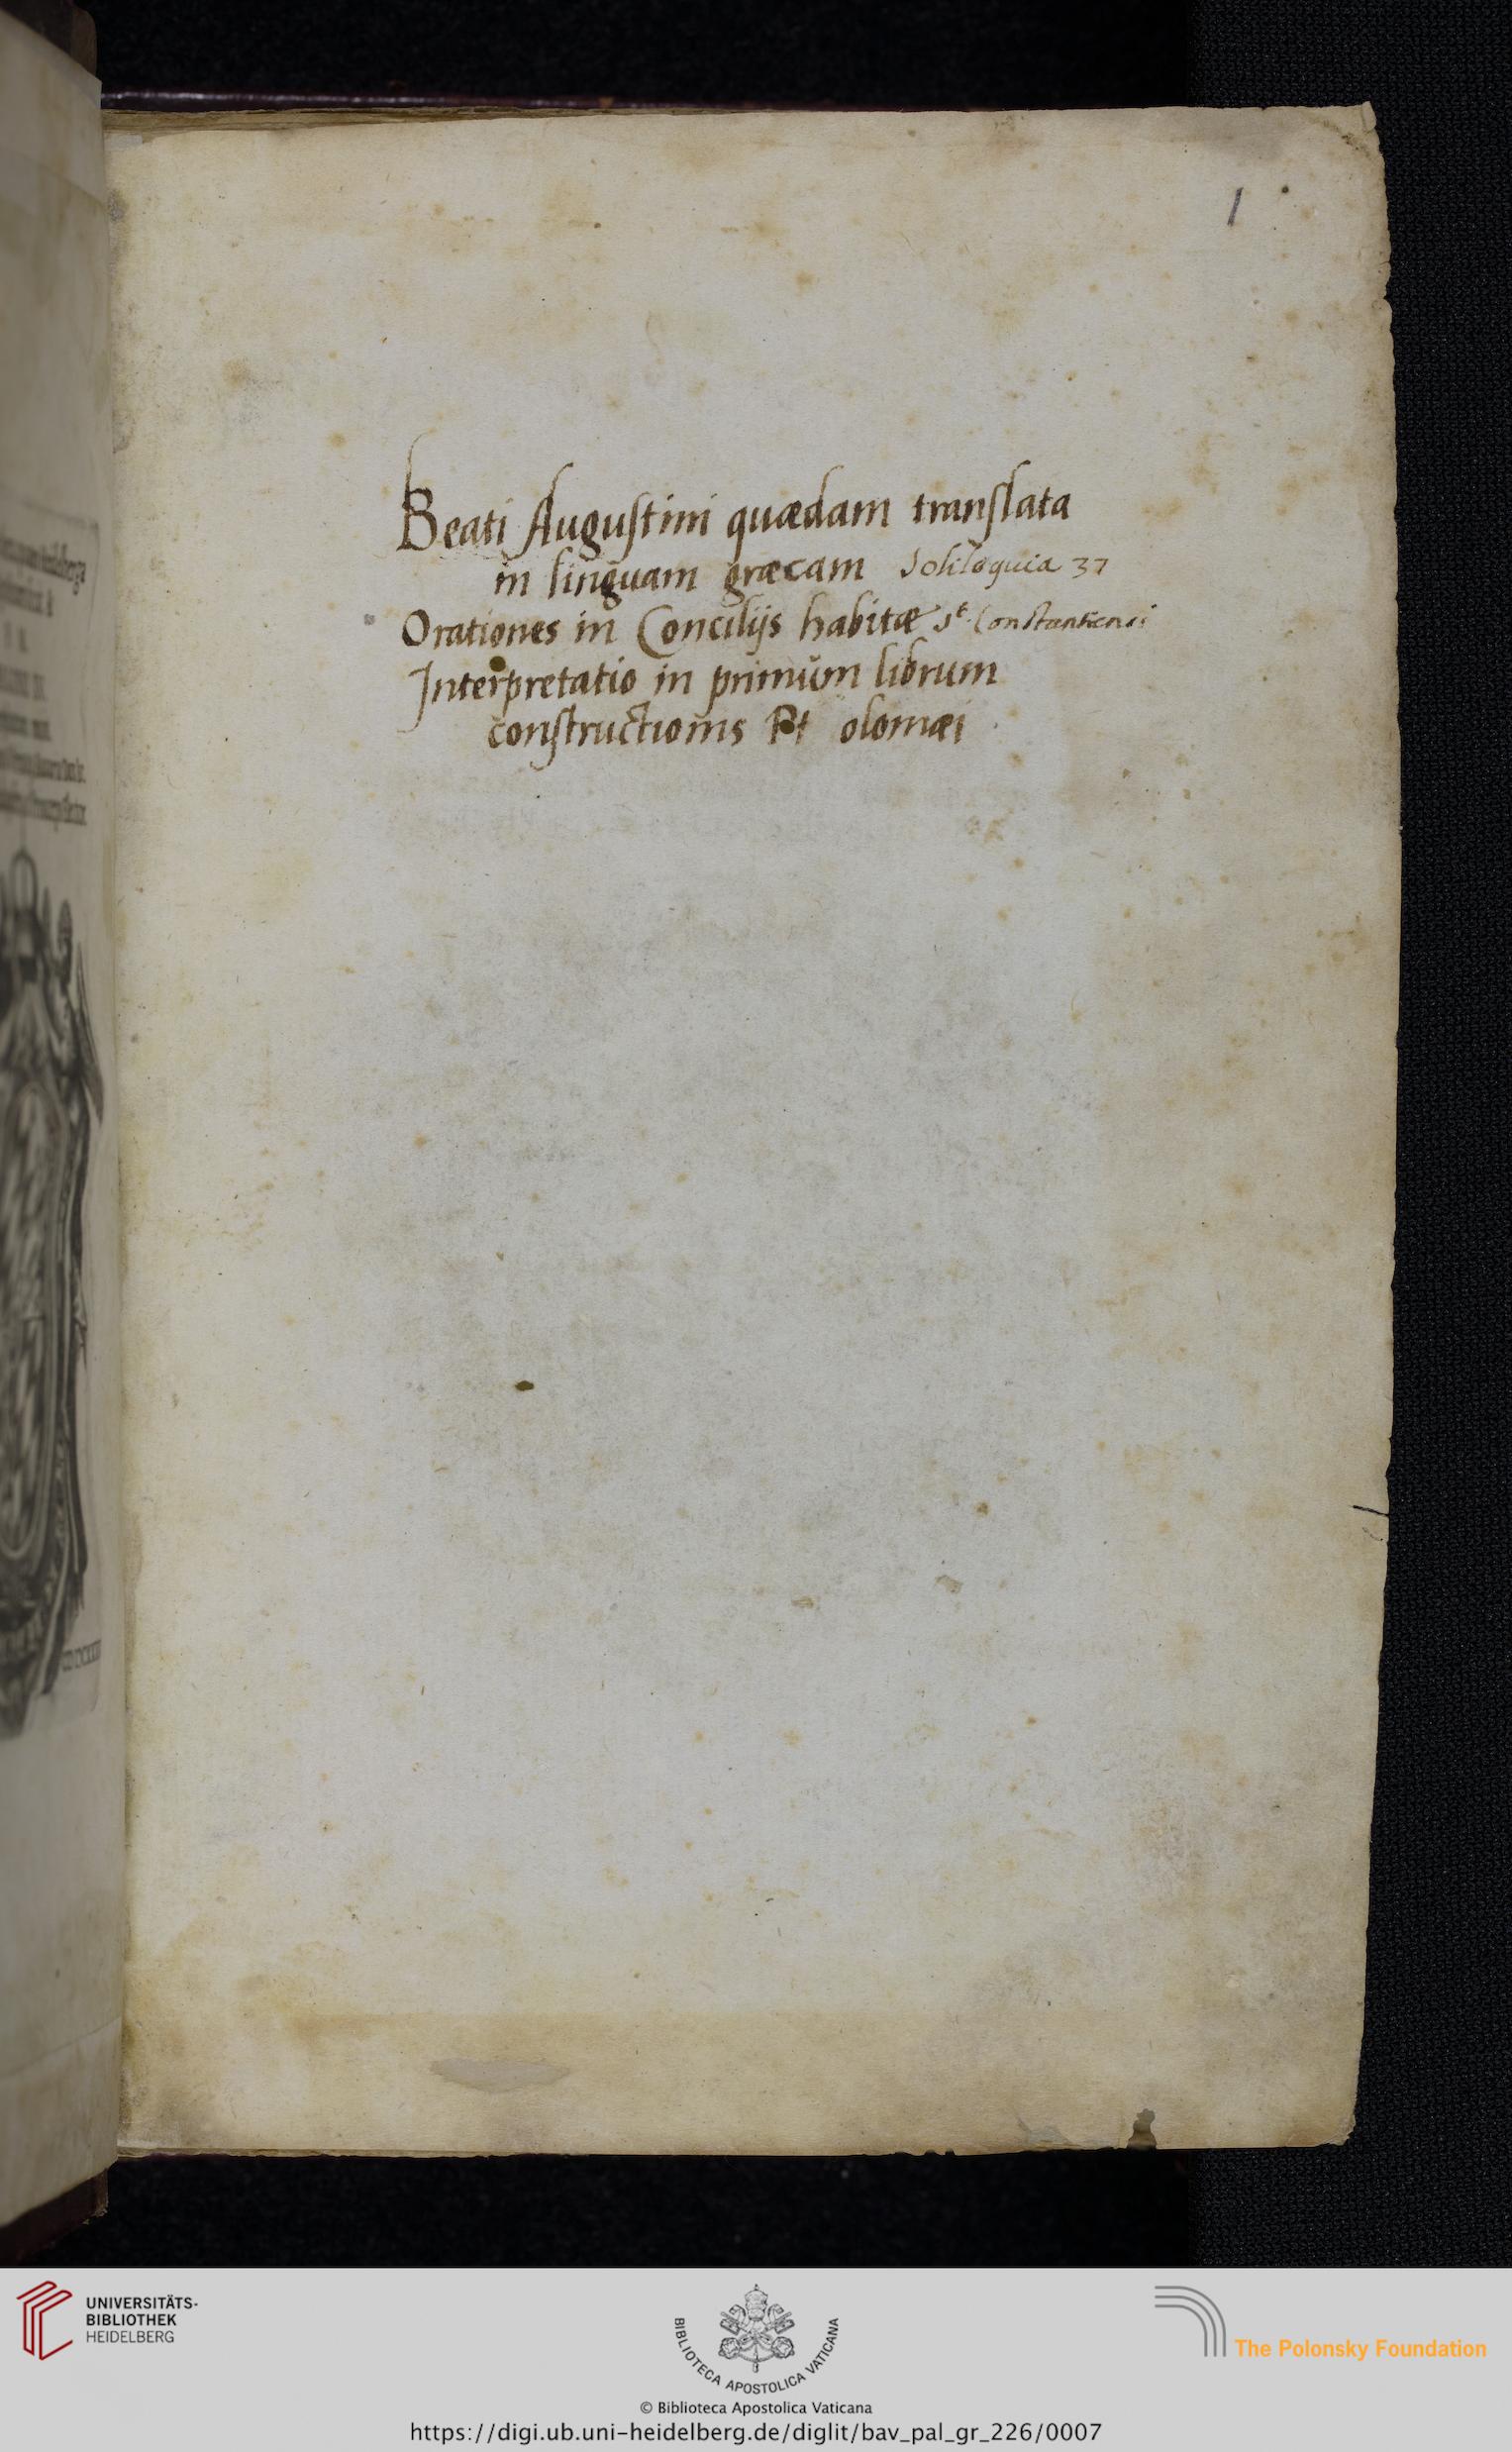 1
Beati Augustini quædam translata
in linguam græcam Soliloquia 37
Orationes in Concilijs habitæ st. Constantiensi
Interpretatio in primum librum
constructionis Pt olomæi
UNIVERSITÄTS-
BIBLIOTHEK
HEIDELBERG
BIBLIOTECA APOSTOLICA VATICANA
The Polonsky Foundation
© Biblioteca Apostolica Vaticana
https://digi.ub.uni-heidelberg.de/diglit/bav_pal_gr_226/0007